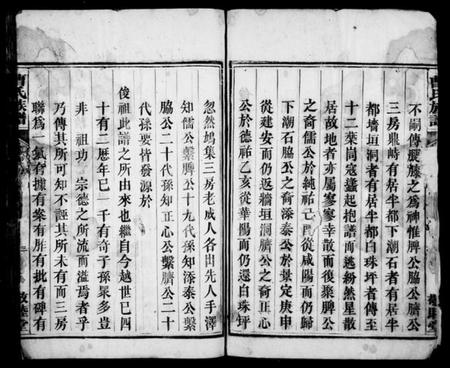 不嗣傳臘滕之為神惟脾公臓公
三房鼎峙有居半都下潮石者有居半
都墻垣洞者有居半都白珠坪者傳至
十二葉而寇蠭起抱譜而逃紛然星散
居故地者亦屬寥寥幸散而復聚脾公
之裔儒公於純祐七巳從咸陽而仍歸
下湖石脇公之裔添泰公於景定庚申
從建安而仍返墻垣洞臍公之裔正心
公於德祐乙亥從華陽而仍還白珠坪
忽然鳩集三房老成人各出先人手澤
知儒公繫脾公十九代孫知添泰公繫
脇公二十代孫知正心公繫臍公二十
代孫要皆發源於
俊祖此譜之所由來也繼自今越世已四
十有二歷年已一千有奇子孫眾多豈
非 祖功 宗德之所流而溢焉者乎
乃傳其所可知不誣其所未有而三房
聯為一氣有據有案有胙有批有碑有
曹氏族譜
敦睦堂